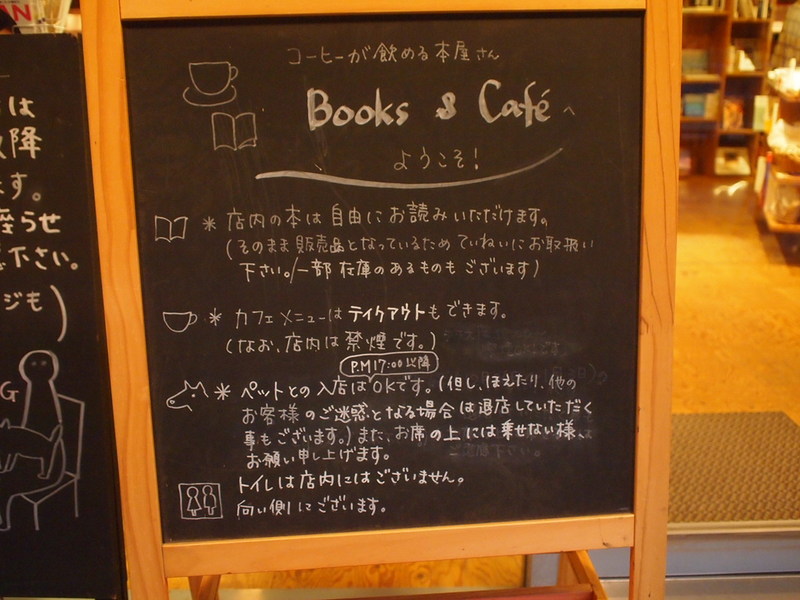 コーヒーが飲める本屋さん
Books & Café へ
ようこそ!
* 店内の本は自由にお読みいただけます。
(そのまま販売品となっているためていねいにお取扱い
下さい。/一部在庫のあるものもございます)
* カフェメニューはテイクアウトもできます。
(なお、店内は禁煙です。)
P.M 17:00以降
* ペットとの入店はOKです。(但し、ほえたり、他の
お客様のご迷惑となる場合は退店していただく
事もございます。)また、お席の上には乗せない様、
お願い申し上げます。
トイレは店内にはございません。
向い側にございます。
は
降
す。
座らせ
下さい。
ジも)
G